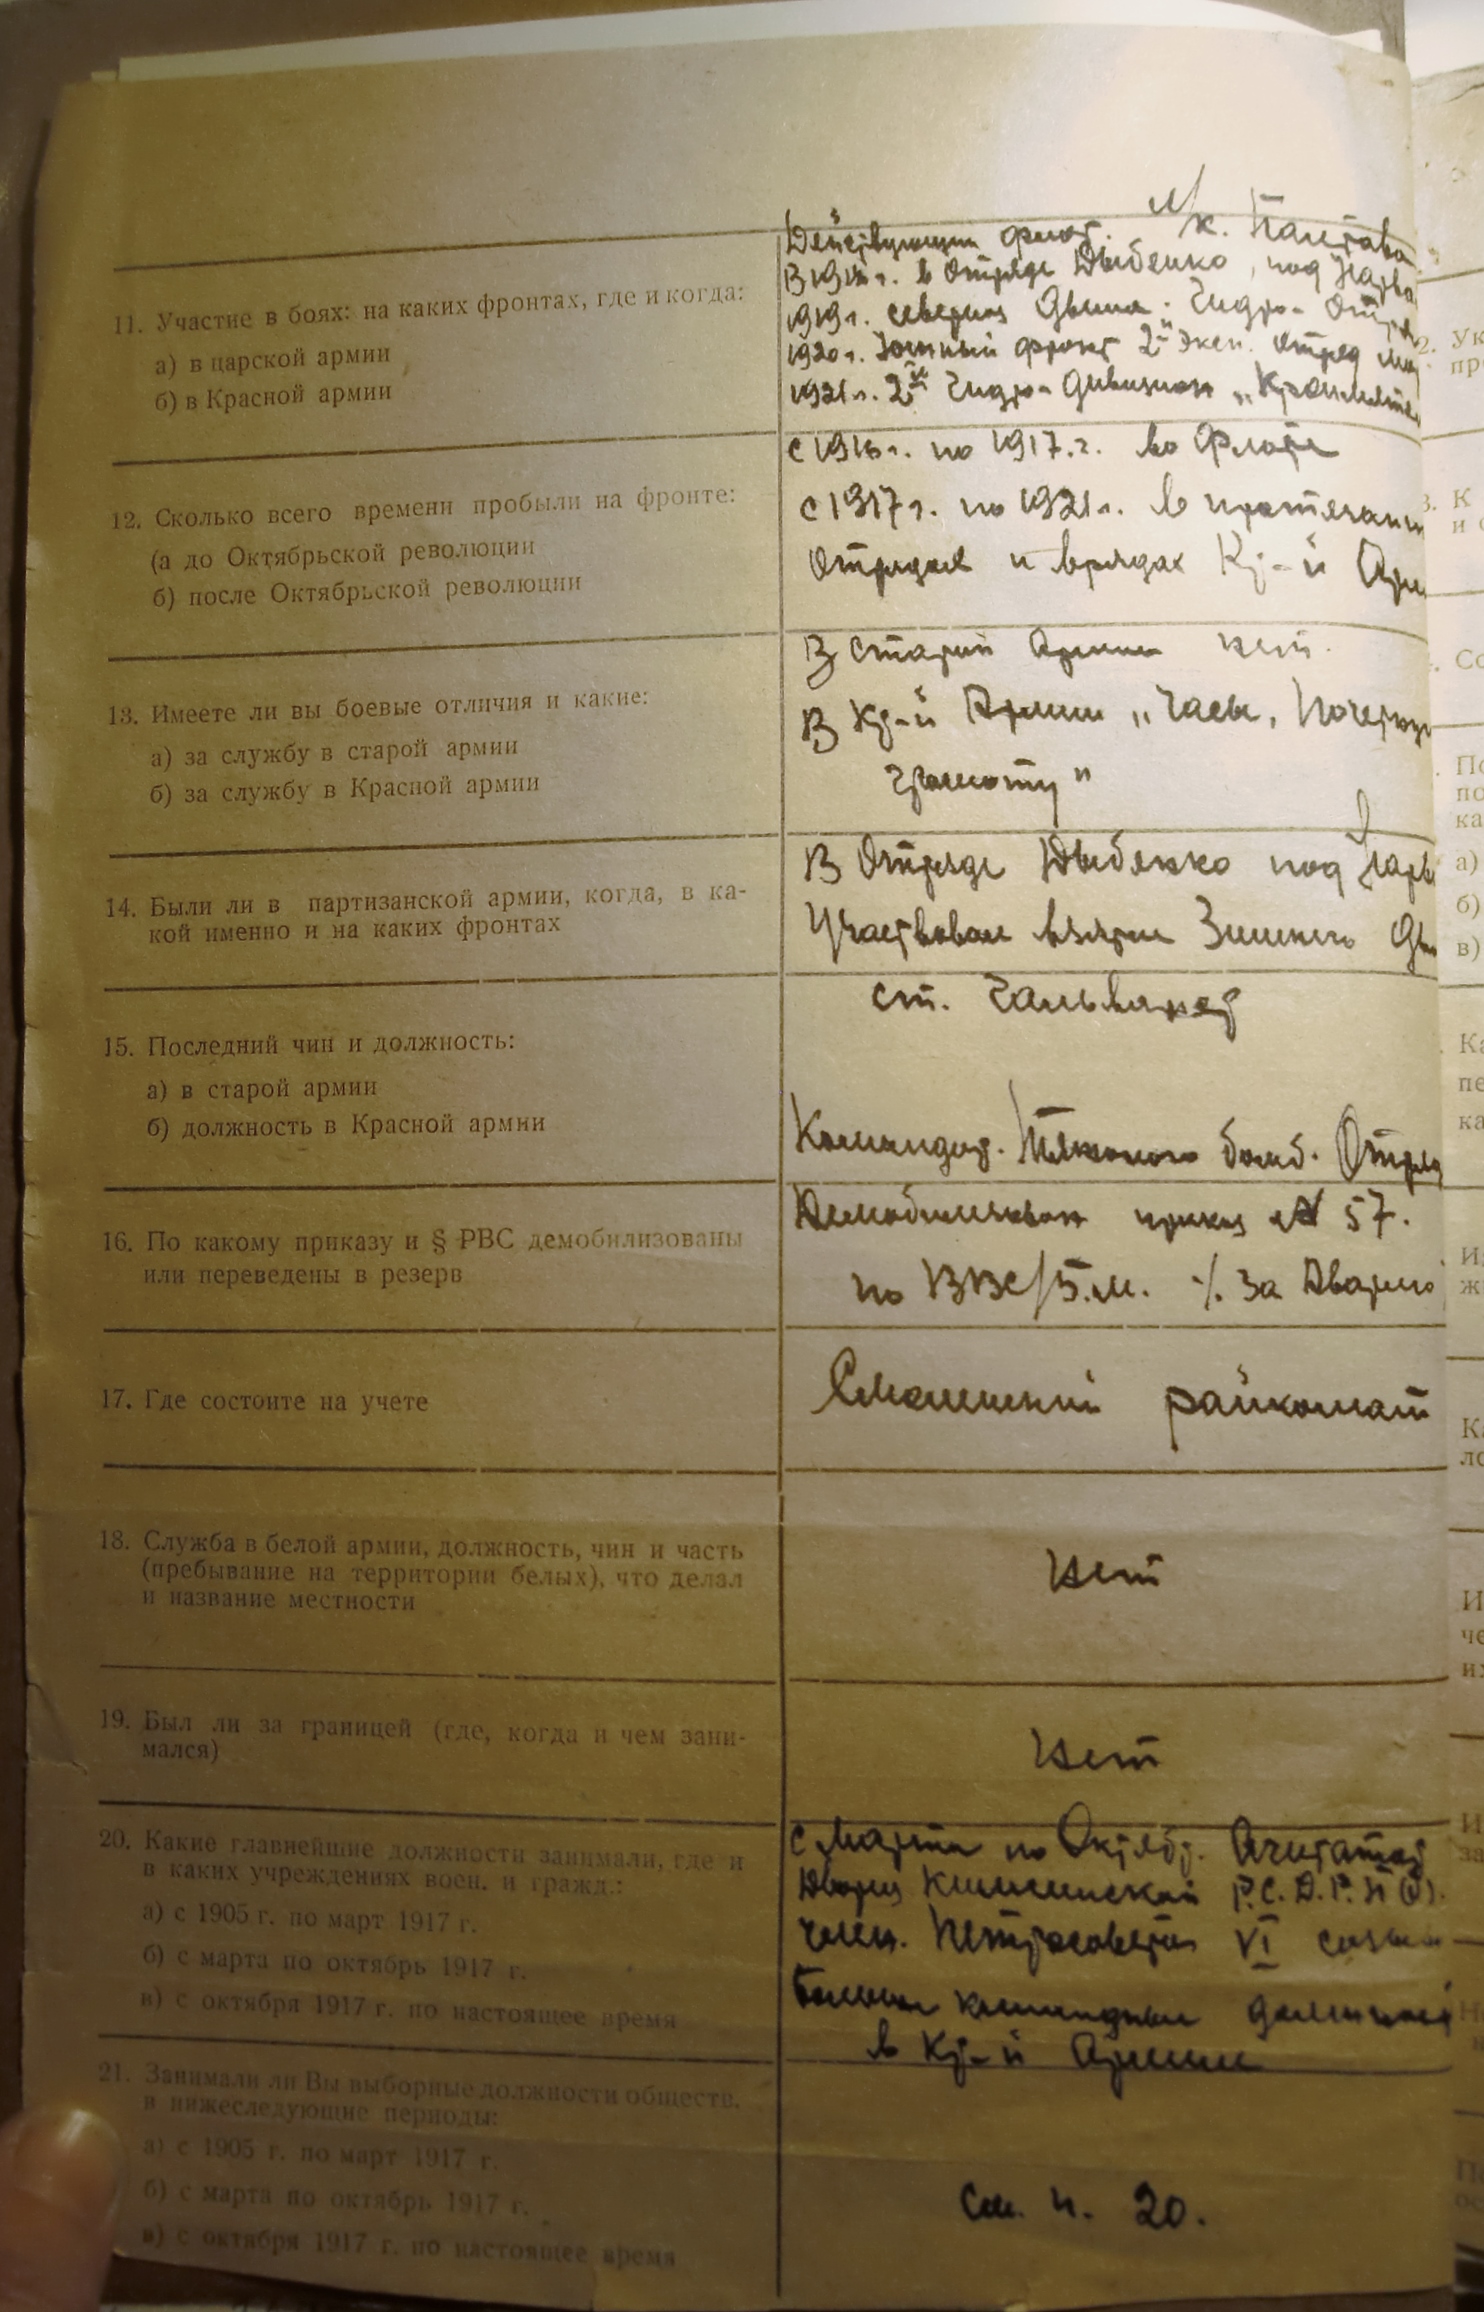 11. Участие в боях: на каких фронтах, где и когда:
а) в царской армии
б) в Красной армии
Действующий флот. Л/к. Полтава
В 1918 г. в Отряде Дыбенко, под Нарво
1919 г. Северная Двина. Гидро-Отря
1920 г. Южный фронт 2й Эксп. Отряд
1921 г. 2й Гидро-Дивизион „Кронште
12. Сколько всего времени пробыли на фронте:
(а до Октябрьской революции
б) после Октябрьской революции
с 1916 г. по 1917.г. во Флоте
с 1917 г. по 1921 г. в
Отрядах и в рядах Кр-й Арм
13. Имеете ли вы боевые отличия и какие:
а) за службу в старой армии
б) за службу в Красной армии
В Старой Армии нет.
В Кр-й Армии „Часы, Почетную
Грамоту"
14. Были ли в партизанской армии, когда, в ка-
кой именно и на каких фронтах
В Отряде Дыбенко под Нарв
Участвовал взятии Зимнего Дв
15. Последний чин и должность:
а) в старой армии
б) должность в Красной армии
ст. Гальванер
Командир. Тяжелого бомб. Отряд
16. По какому приказу и § РВС демобилизованы
или переведены в резерв
Демобилизован приказ № 57.
по ВВС/Б.М.
17. Где состоите на учете
Смольнинский райкомат
18. Служба в белой армии, должность, чин и часть
(пребывание на территории белых), что делал
и название местности
Нет
19. Был ли за границей (где, когда и чем зани-
мался)
Нет
20. Какие главнейшие должности занимали, где и
в каких учреждениях воен. и гражд.:
а) с 1905 г. по март 1917 г.
б) с марта по октябрь 1917 г.
в) с октября 1917 г. по настоящее время
с Марта по Октябр. Агитатор
Дворец Кшесинской Р.С.Д.Р.П(б).
член. Петросовета VI созыва
командные должност
в Кр-й Армии
21. Занимали ли Вы выборные должности обществ.
в нижеследующие периоды:
а) с 1905 г. по март 1917 г.
б) с марта по октябрь 1917 г.
в) с октября 1917 г. по настоящее время
См. п. 20.